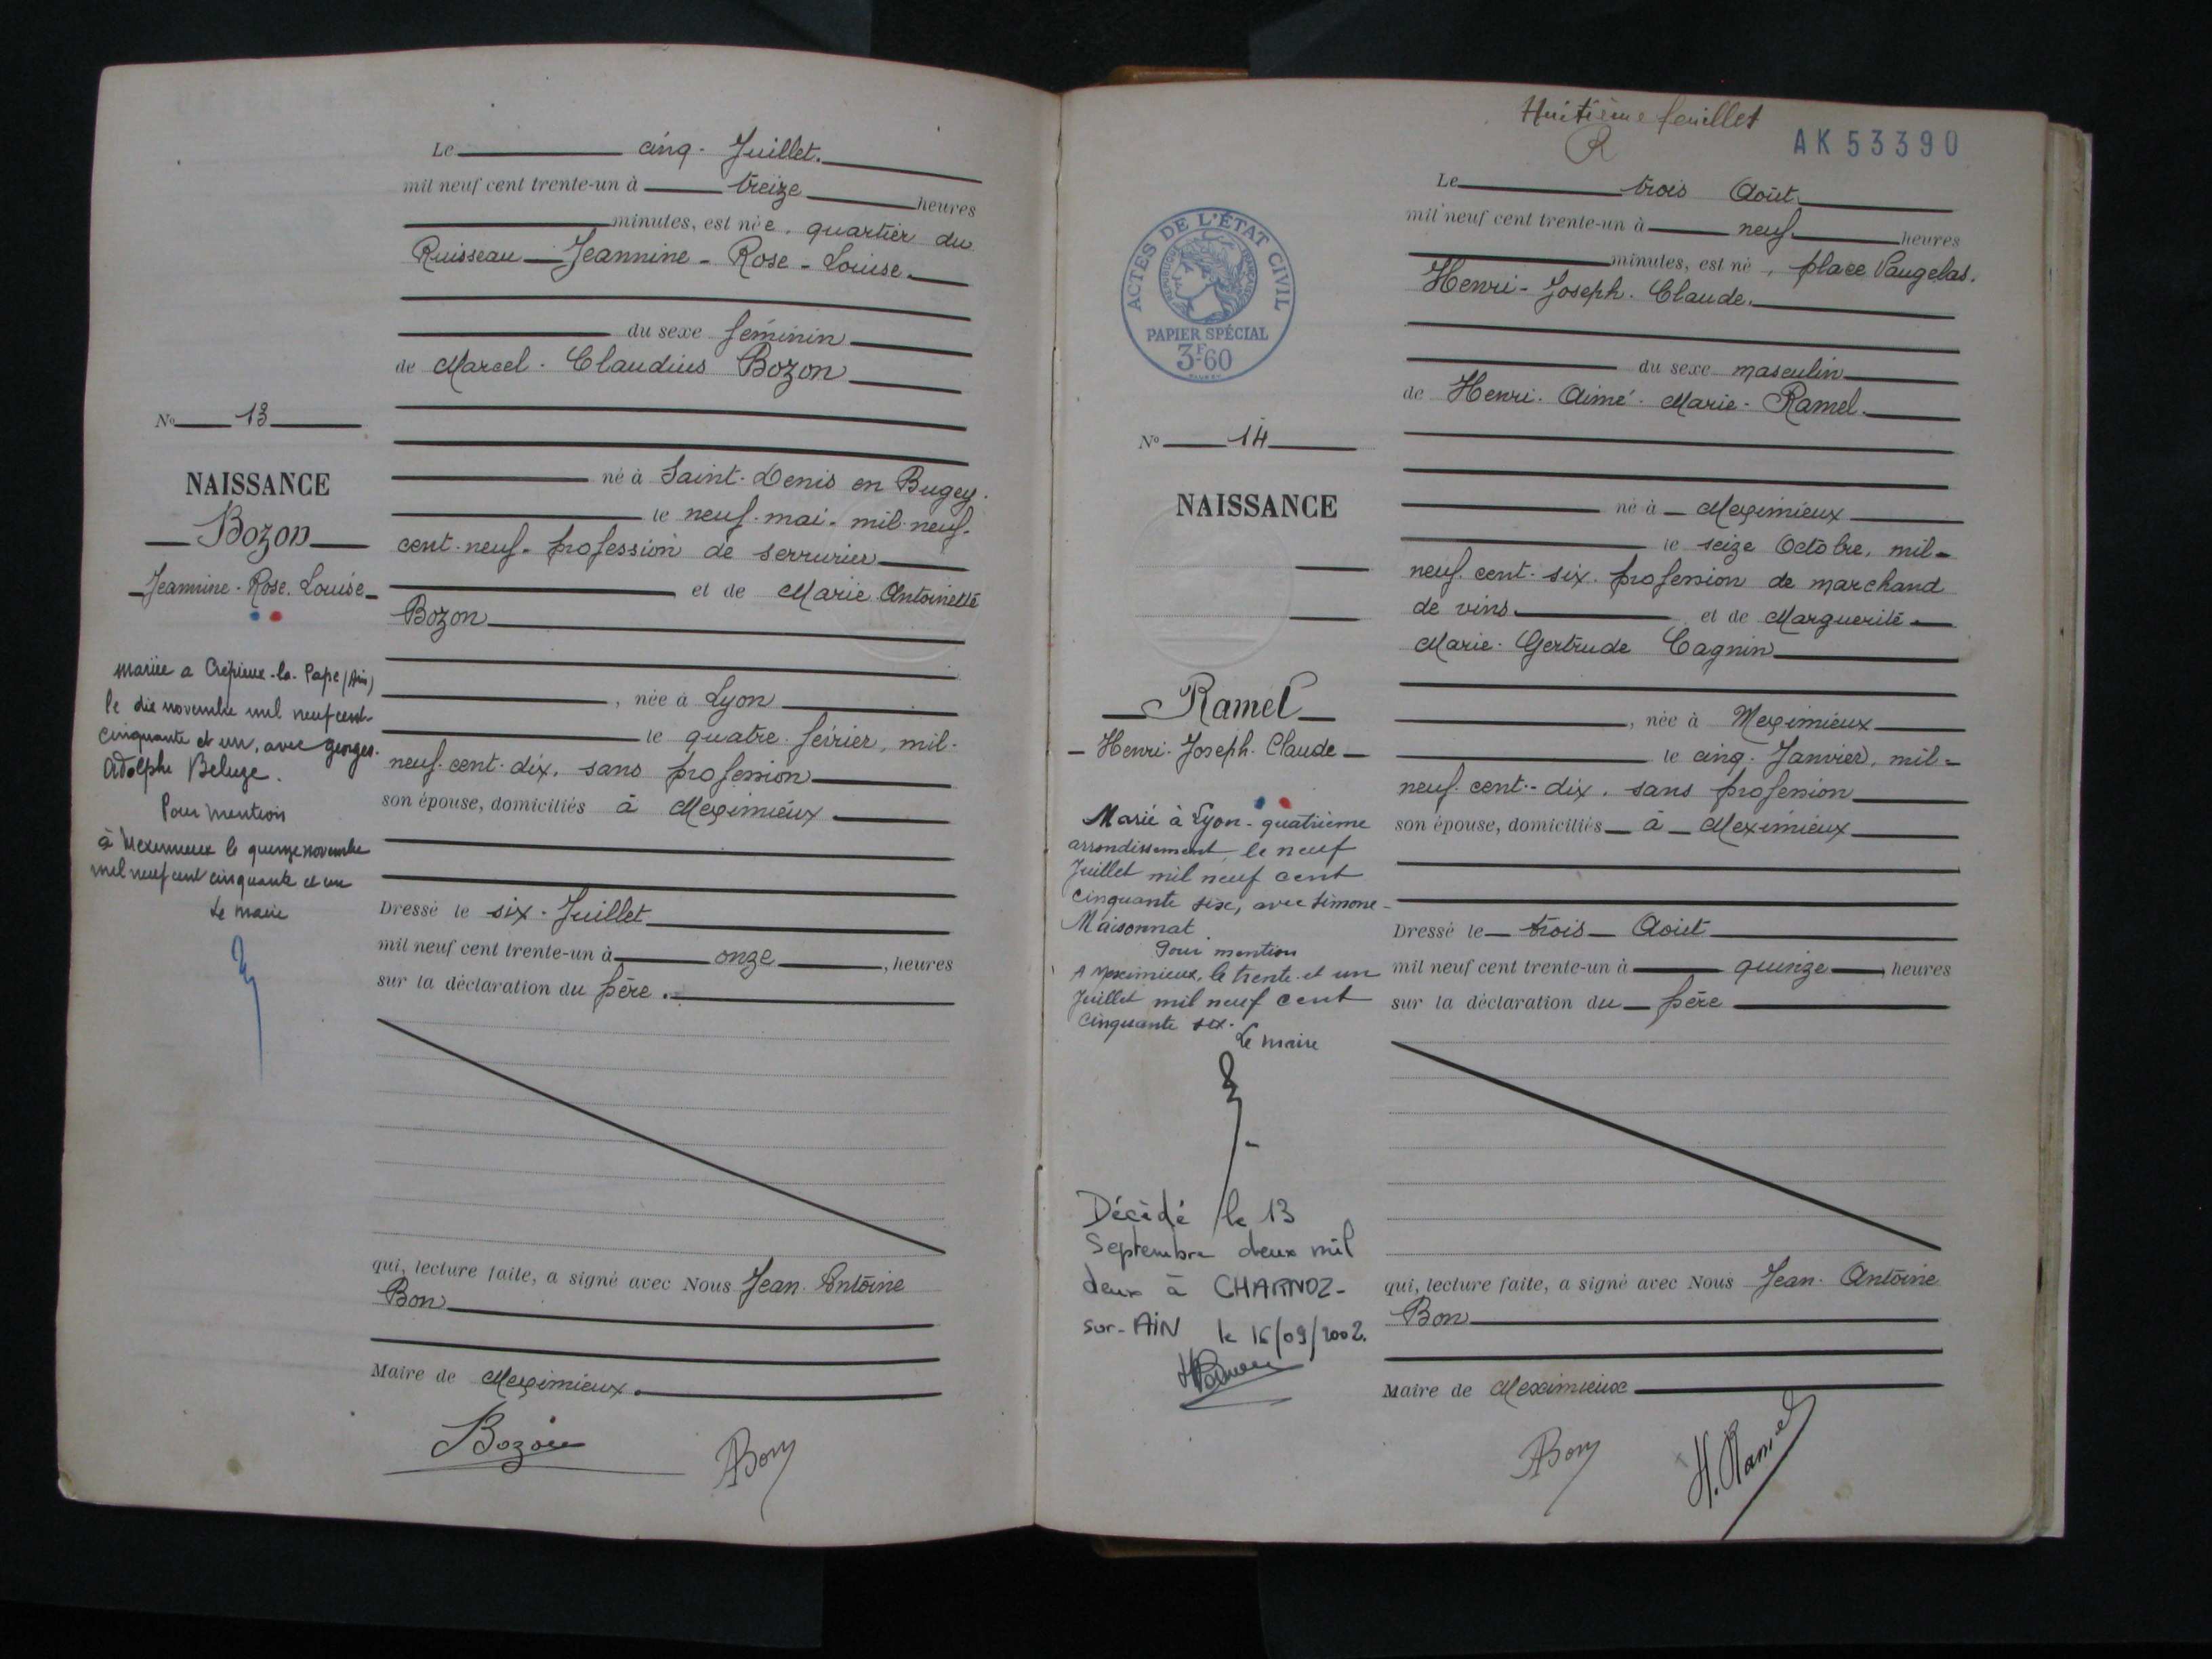 Le cinq - Juillet.
mil neuf cent trente-un à treize heures
minutes, est née, quartier du
Ruisseau Jeannine - Rose - Louise
du sexe féminin
de Marcel - Claudius Bozon
né à Saint-Denis en Bugey.
le neuf - mai - mil neuf-
cent - neuf - profession de serrurier
et de Marie Antoinette
Bozon
, née à Lyon
le quatre février, mil-
neuf - cent - dix, sans profession
son épouse, domiciliés à Meximieux
Dressé le six - Juillet
mil neuf cent trente-un à onze, heures
sur la déclaration du père.
qui, lecture faite, a signé avec Nous Jean - Antoine
Bon
Maire de Meximieux.
Bozon
ABon
No 13
NAISSANCE
Bozon
Jeannine - Rose. Louise
mariée a Crépieux-la-Pape (Ain)
le dix novembre mil neuf cent
cinquante et un, avec Georges-
Adolphe Beluze.
Pour mention
à Meximieux le quinze novembre
mil neuf cent cinquante et un
Le maire
Huitième feuillet
R
AK53390
ACTES DE L'ÉTAT CIVIL
RÉPUBLIQUE FRANÇAISE
PAPIER SPÉCIAL
3F.60
No 14
NAISSANCE
Ramel
Henri - Joseph - Claude
Marié à Lyon - quatrième
arrondissement, le neuf
Juillet mil neuf cent
cinquante six, avec Simone
Maisonnat
Pour mention
A Meximieux, le trente et un
Juillet mil neuf cent
cinquante six.
Le maire
Décédé le 13
Septembre deux mil
deux à CHARNOZ-
sur-AIN le 16/09/2002.
Le trois Août
mil neuf cent trente-un à neuf heures
minutes, est né, place Vaugelas.
Henri - Joseph - Claude.
du sexe masculin
de Henri - Aimé - Marie - Ramel.
né à Meximieux
le seize Octobre, mil-
neuf - cent - six - profession de marchand
de vins et de Marguerite
Marie - Gertrude Cagnin
, née à Meximieux
le cinq - Janvier, mil-
neuf - cent - dix, sans profession
son épouse, domiciliés à Meximieux
Dressé le trois Août
mil neuf cent trente-un à quinze, heures
sur la déclaration du père
qui, lecture faite, a signé avec Nous Jean - Antoine
Bon
Maire de Meximieux
ABon
H. Ramel